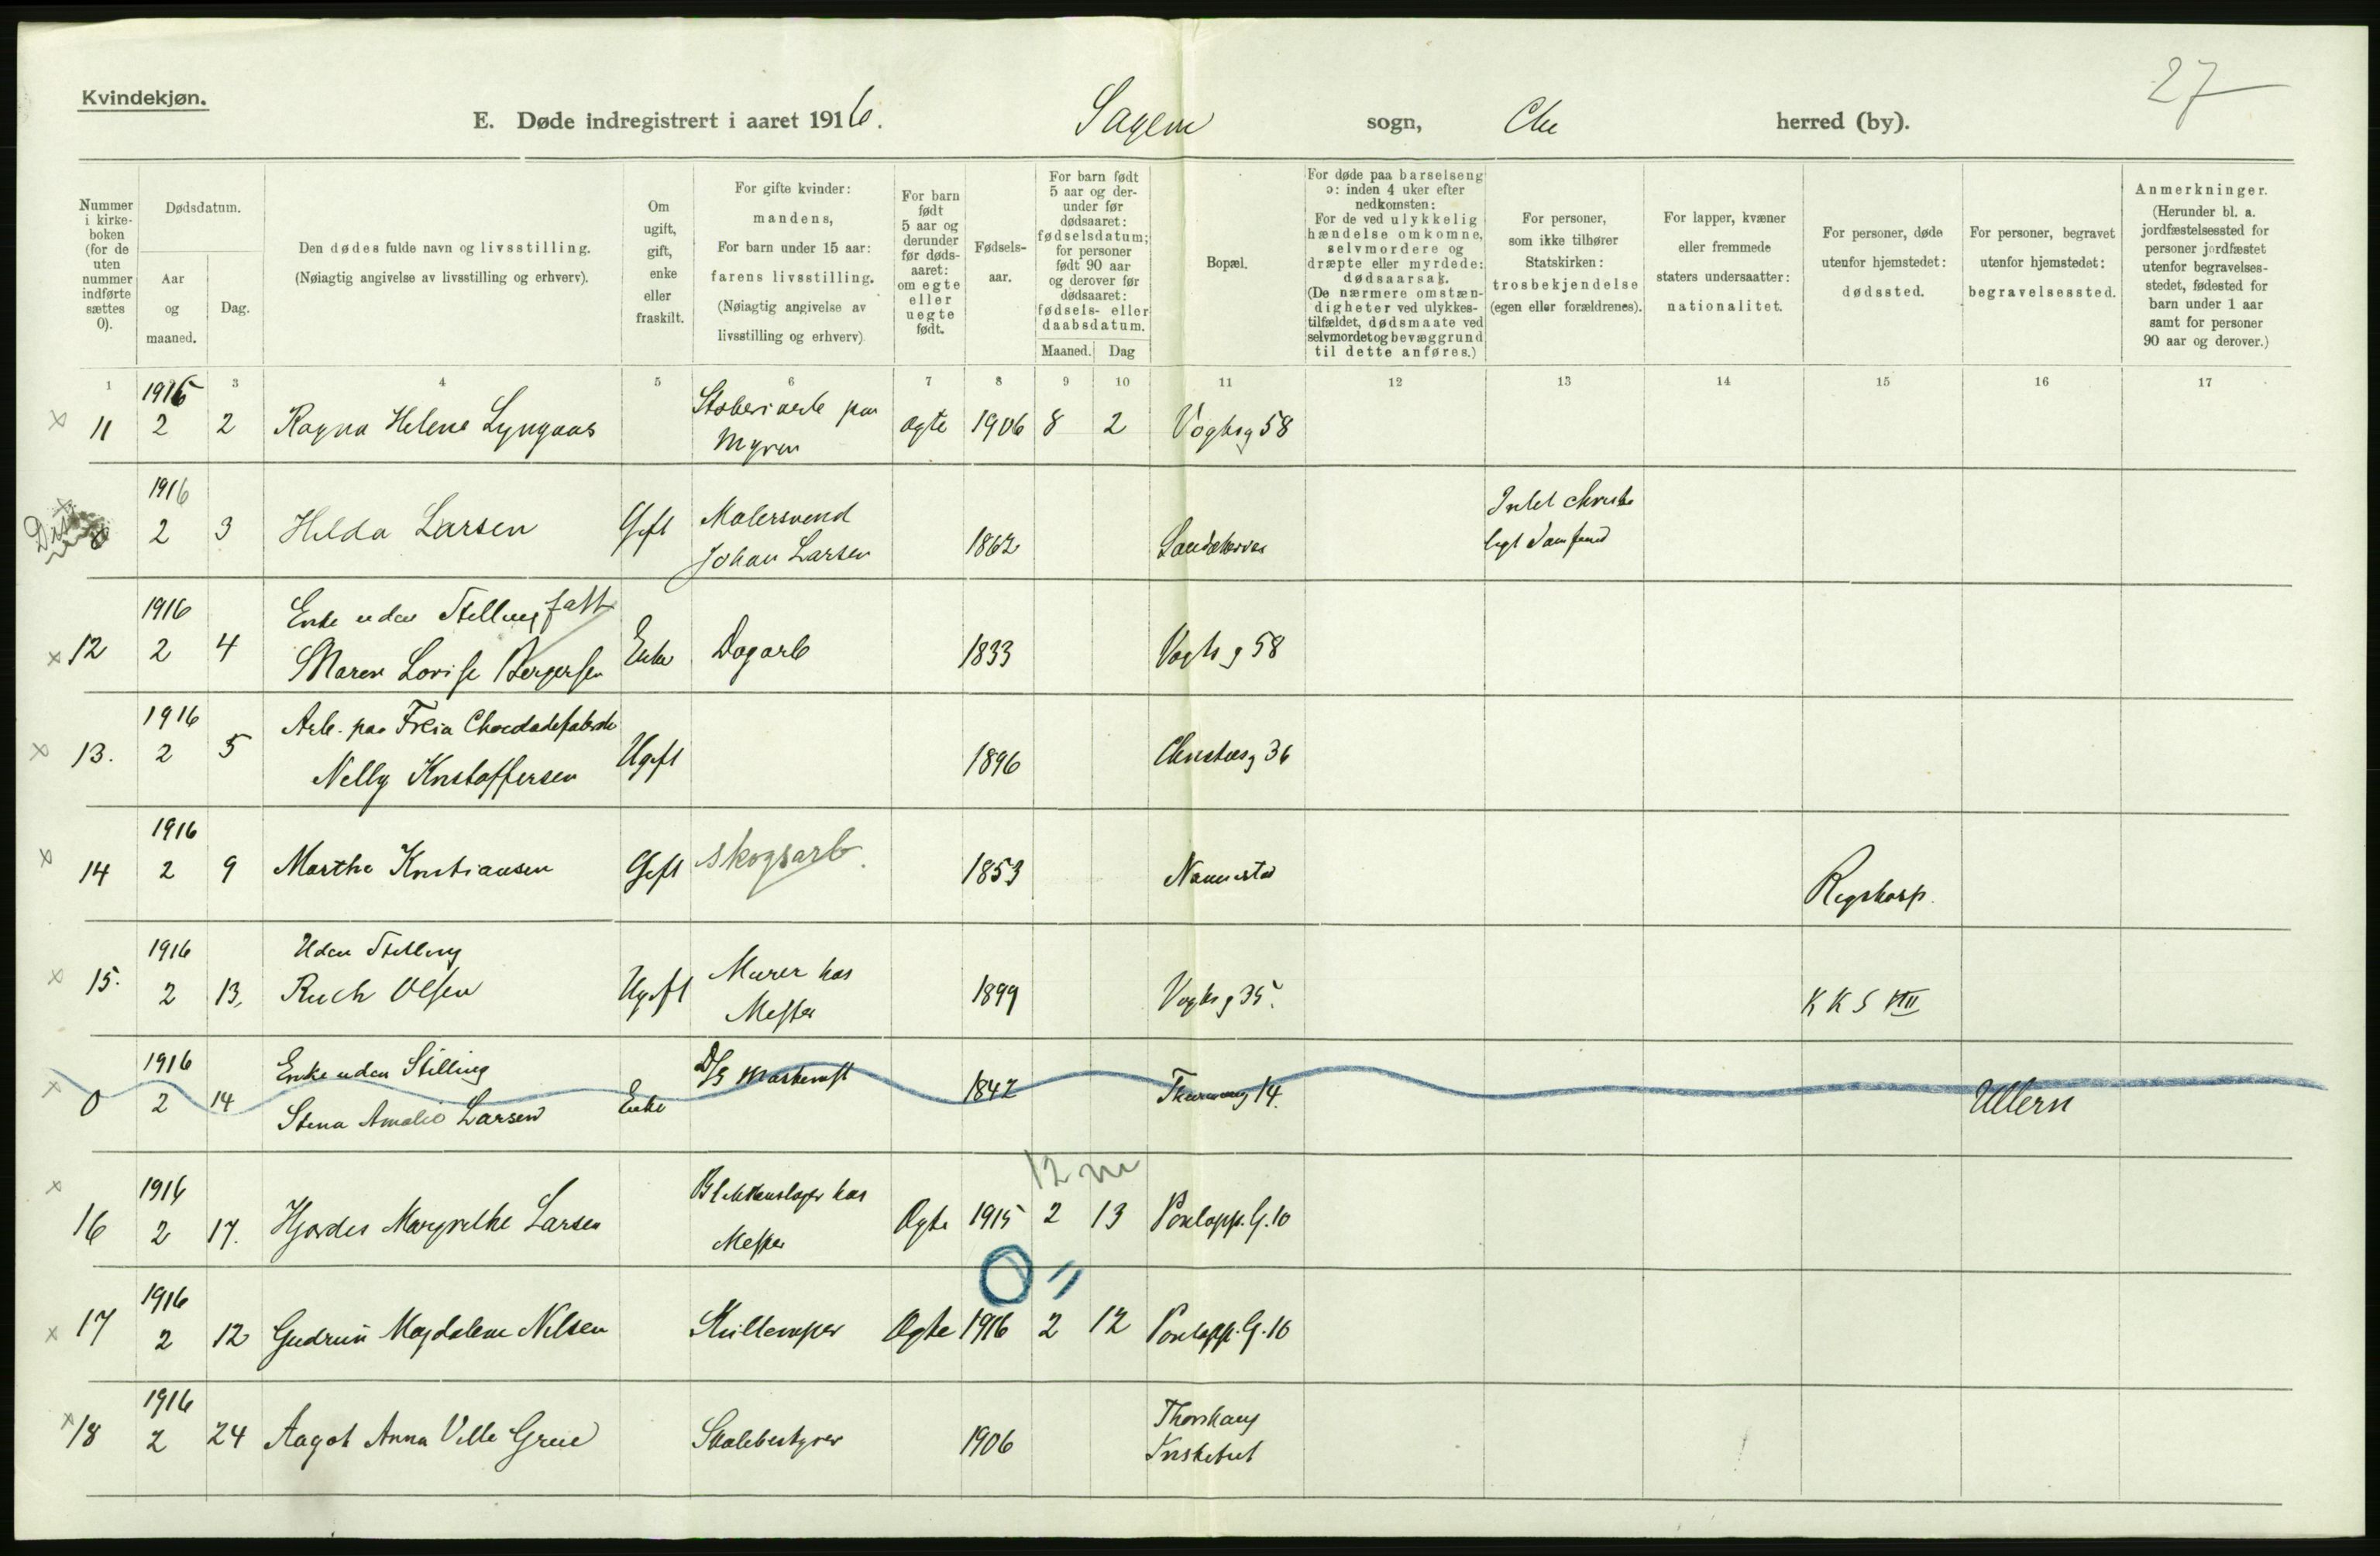 27
Kvindekjøn.
E. Døde indregistrert i aaret 1916. Sagene sogn, Chr herred (by).
Nummer i kirke-boken (for de uten nummer indførte sættes 0).
Dødsdatum.
Aar og maaned.
Dag.
Den dødes fulde navn og livsstilling.
(Nøiagtig angivelse av livsstilling og erhverv).
Om ugift, gift, enke eller fraskilt.
For gifte kvinder: mandens,
For barn under 15 aar: farens livsstilling.
(Nøiagtig angivelse av livsstilling og erhverv)
For barn født 5 aar og derunder før døds-aaret: om egte eller uegte født.
Fødsels-aar.
For barn født 5 aar og der-under før dødsaaret: fødselsdatum; for personer født 90 aar og derover før dødsaaret: fødsels- eller daabsdatum.
Maaned.
Dag
Bopæl.
For døde paa barselseng ɔ: inden 4 uker efter nedkomsten:
For de ved ulykkelig hændelse omkomne, selvmordere og dræpte eller myrdede: dødsaarsak.
(De nærmere omstæn-digheter ved ulykkes-tilfældet, dødsmaate ved selvmordet og bevæggrund til dette anføres.)
For personer, som ikke tilhører Statskirken: trosbekjendelse (egen eller forældrenes).
For lapper, kvæner eller fremmede staters undersaatter: nationalitet.
For personer, døde utenfor hjemstedet: dødssted.
For personer, begravet utenfor hjemstedet: begravelsessted.
Anmerkninger.
(Herunder bl. a. jordfæstelsessted for personer jordfæstet utenfor begravelses-stedet, fødested for barn under 1 aar samt for personer 90 aar og derover.)
1 3 4 5 6 7 8 9 10 11 12 13 14 15 16 17
1916 Støberiarb paa
x 11 2 2 Ragna Helene Lyngaas Myren Ægte 1906 8 2 Vogtsg 58
1916 Malersvend
2 3 Hilda Larsen Gift Johan Larsen 1862 Intet christe
ligt Samfund
1916 Enke uden Stilling fatt
x 12 2 4 Maren Lovise Bergersen Enke Dagarb 1833 Vogts g 58
1916 Arb. paa Freia Chocoladefabrik
x 13. 2 5 Nelly Kristoffersen Ugift 1896 36
1916
x 14 2 9 Marthe Kristiansen Gift skogsarb. 1853 Nannestad Rigshosp.
1916 Uden Stilling Murer hos
x 15. 2 13. Ruth Olsen Ugift Mester 1899 Vogts g 35. K K S VIII
1916 Enke uden Stilling D/S Maskinist
x 0 2 14 Stina Amalie Larsen Enke 1842 14. Ullern
12 m
1916 Blikkenslager hos
x 16 2 17. Hjordis Margrethe Larsen Mester Ægte 1915 2 13 Porelapp. G. 10
0 "
1916
x 17 2 12 Gudrun Magdalene Nilsen Ægte 1916 2 12 Porelapp. G. 10
1916 Thorshaug
x 18 2 24 Aagot Anna Ville Greie Skolebestyrer 1906